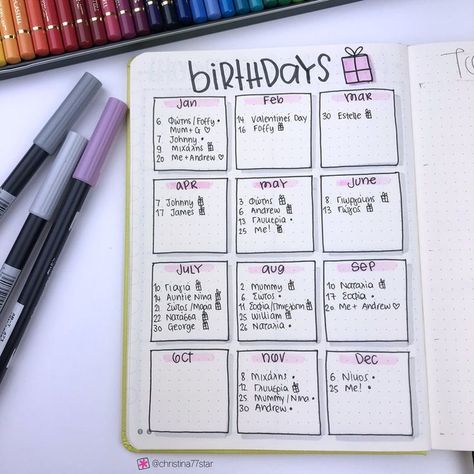 BIRTHDAYS
Jan
6 Φώτης/Foffy •
Mum+G ♡
7 Johnny •
9 Μιχάλης
20 Me + Andrew ♡
Feb
14 Valentines Day
16 Foffy
MAR
30 Estelle
APR
7 Johnny
17 James
MAY
3 Φώτης
6 Andrew
13 Γλυκερία •
25 Me!
JUNE
8 Γιωργάκης
13 Γιώργος
JULY
10 Γιαγιά
14 Auntie Nina
21 Σωτος/Μαρία
22 Νατάσσα
30 George
AUG
2 Mummy
6 Σωτος •
11 Σοφία/
25 William
26 Ναταλία •
SEP
10 Ναταλία
17 Σοφία •
20 Me + Andrew ♡
OCT
NOV
8 Μιχάλης •
12 Γλυκερία
25 Mummy/Nina •
30 Andrew •
Dec
6 Νίκος •
25 Me! •
@christina77star